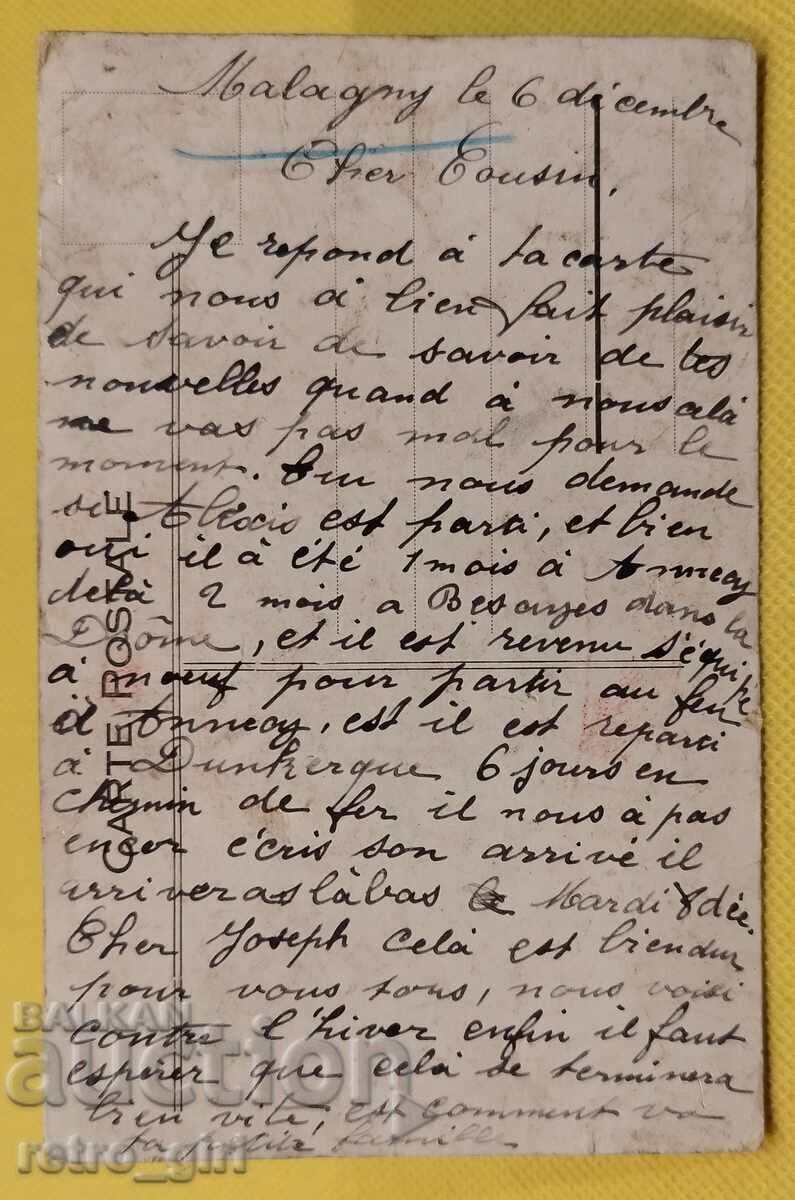 Malagny le 6 décembre
Cher Cousin,
Je repond à ta carte
qui nous à bien fait plaisir
de savoir de savoir de tes
nouvelles quand à nous celà
ne vas pas mal pour le
moment. Tu nous demande
si Aléxis est parti, et bien
oui il à été 1 mois à Annecy
delà 2 mois a Besayes dans la
Drôme, et il est revenu s'équipé
à neuf pour partir au feu
d'Annecy, est il est reparti
à Dunkerque 6 jours en
chemin de fer il nous à pas
encor écris son arrivé il
arriveras làbas le Mardi 8 déc.
Cher Joseph celà est bien dur
pour vous tous, nous voici
contre l'hiver enfin il faut
espérer que celà se terminera
bien vite, est comment va
ta petite famille
CARTE POSTALE
BALKAN
auction
retro_girl